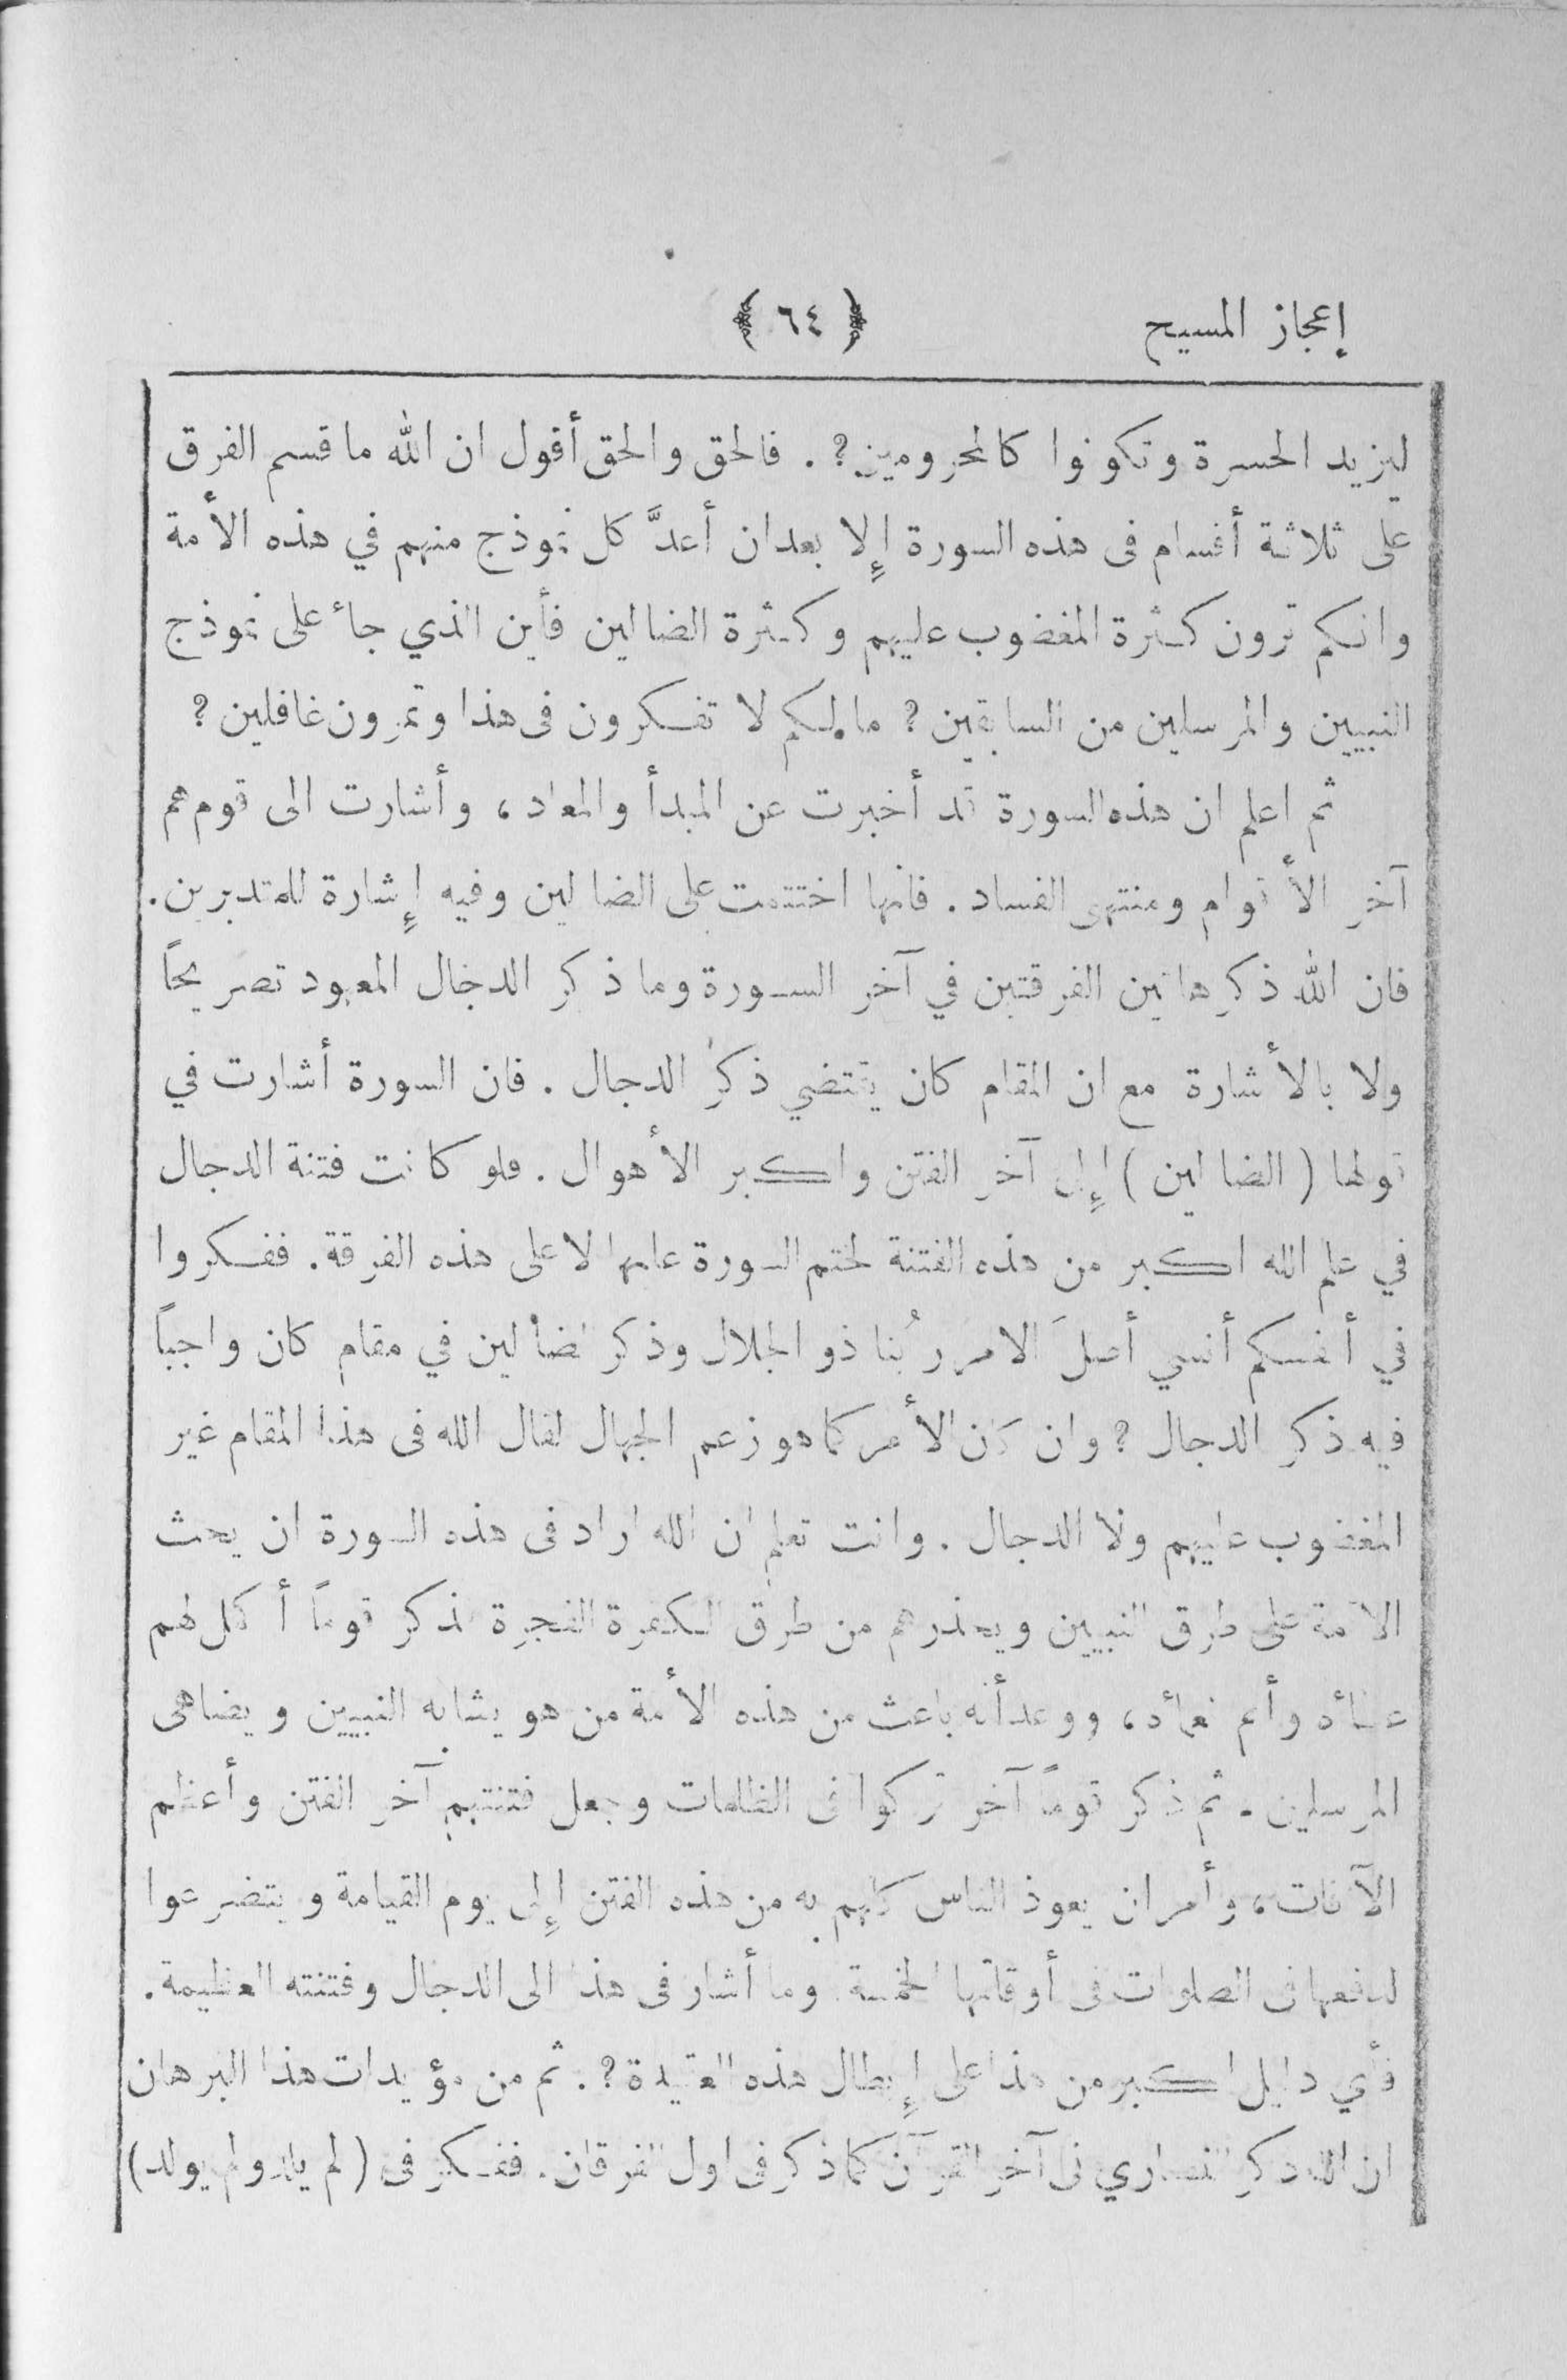 إعجاز المسيح ﴿ ٦٤ ﴾
ليزيد الحسرة وتكونوا كالمحرومين؟ . فالحق والحق أقول ان الله ما قسم الفرق
على ثلاثة أقسام فى هذه السورة إلا بعدان أعدَّ كل نموذج منهم في هذه الأمة
وانكم ترون كثرة المغضوب عليهم وكثرة الضالين فأين الذي جاء على نموذج
النبيين والمرسلين من السابقين ؟ مالكم لا تفكرون فى هذا وتمرون غافلين ؟
ثم اعلم ان هذه السورة قد أخبرت عن المبدأ والمعاد ، وأشارت الى قوم هم
آخر الأقوام ومنتهى الفساد . فانها اختتمت على الضالين وفيه إشارة للمتدبرين .
فان الله ذكر هاتين الفرقتين في آخر السورة وما ذكر الدجال المعهود تصريحاً
ولا بالأشارة مع ان المقام كان يقتضي ذكر الدجال . فان السورة أشارت في
قولها ( الضالين ) إلى آخر الفتن واكبر الأهوال . فلو كانت فتنة الدجال
في علم الله اكبر من هذه الفتنة لختم السورة عليها لا على هذه الفرقة . ففكروا
في أنفسكم أنسي أصلَ الامر ربُنا ذو الجلال وذكر الضالين في مقام كان واجباً
فيه ذكر الدجال ؟ وان كان الأمر كما هو زعم الجهال لقال الله فى هذا المقام غير
المغضوب عليهم ولا الدجال . وانت تعلم ان الله اراد فى هذه السورة ان يحث
الامة على طرق النبيين ويحذرهم من طرق الكفرة الفجرة فذكر قوماً أكمل لهم
عطاءه وأتم نعماءه ، ووعد أنه باعث من هذه الأمة من هو يشابه النبيين ويضاهى
المرسلين . ثم ذكر قوماً آخر تركوا فى الظلمات وجعل فتنتهم آخر الفتن وأعظم
الآفات ، وأمر ان يعوذ الناس كلهم به من هذه الفتن إلى يوم القيامة ويتضرعوا
لدفعها فى الصلوات فى أوقاتها الخمسة وما أشار فى هذا الى الدجال وفتنته العظيمة .
فأي دليل اكبر من هذا على إبطال هذه العقيدة ؟ . ثم من مؤيدات هذا البرهان
ان الله ذكر النصاري فى آخر القرآن كما ذكر فى اول الفرقان . ففكر فى ( لم يلد ولم يولد )